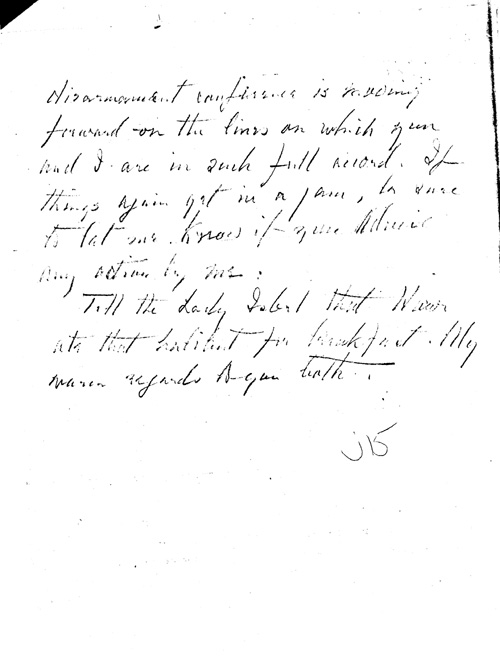 disarmament conference is moving
forward on the lines on which you
and I are in such full accord. If
things again get in a jam, be sure
to let me know if you advise
any action by me.
Tell the Lady Isobel that
ate that halibut for breakfast. My
warm regards to you both.